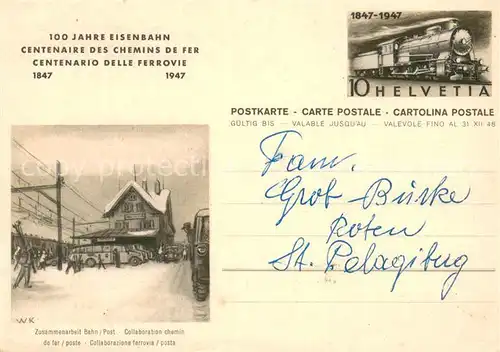 100 JAHRE EISENBAHN
CENTENAIRE DES CHEMINS DE FER
CENTENARIO DELLE FERROVIE
1847 1947
1847-1947
10 HELVETIA
POSTKARTE - CARTE POSTALE - CARTOLINA POSTALE
GÜLTIG BIS — VALABLE JUSQU'AU — VALEVOLE FINO AL 31 XII 48
Fam.
Grob-Bürke
Roten
St. Pelagibug
WK
Zusammenarbeit Bahn/Post · Collaboration chemin
de fer / poste · Collaborazione ferrovia / posta